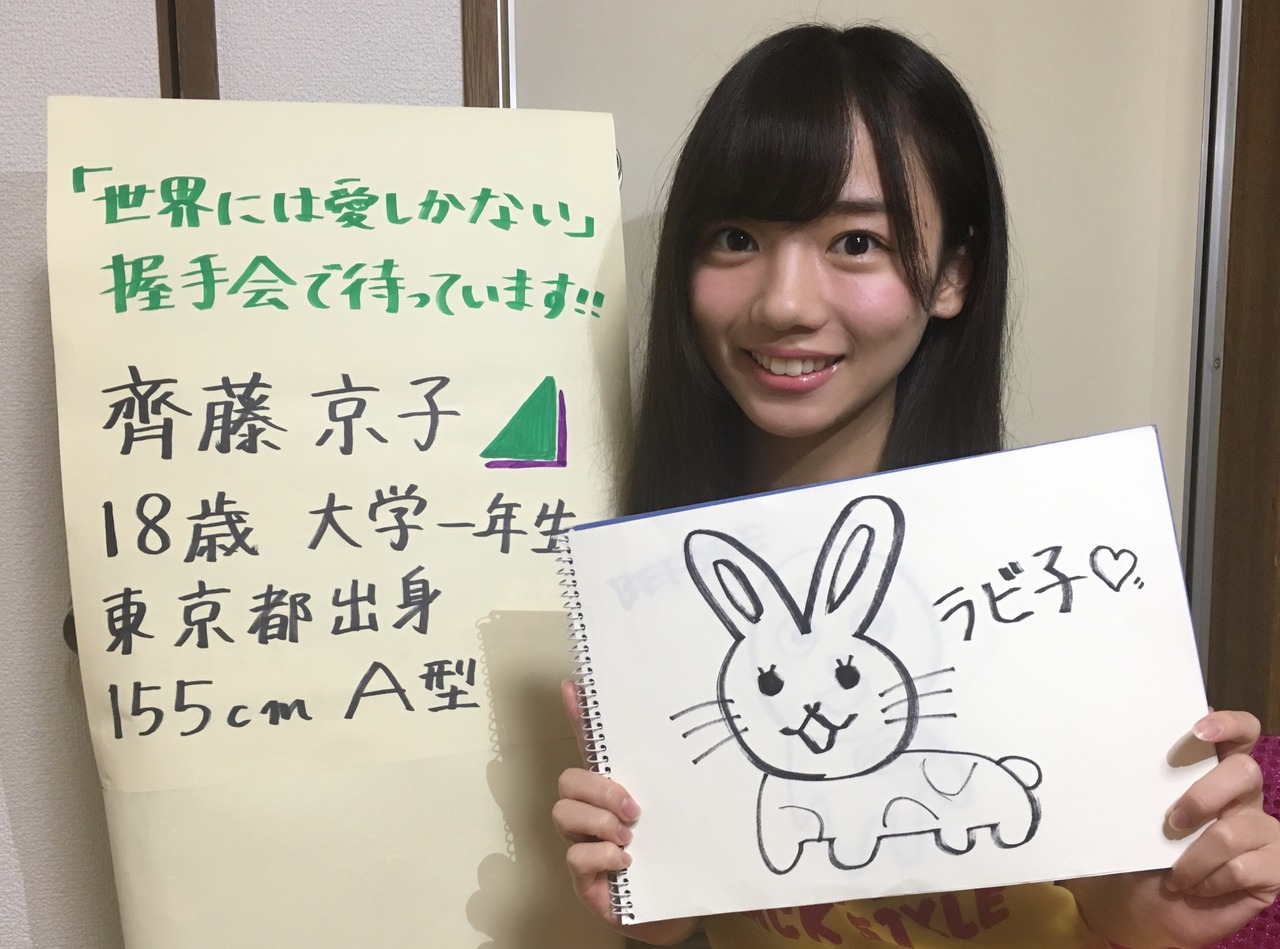 「世界には愛しかない」
握手会で待っています!!
齊藤 京子
18歳 大学一年生
東京都出身
155cm A型
ラビ子♡
STYLE